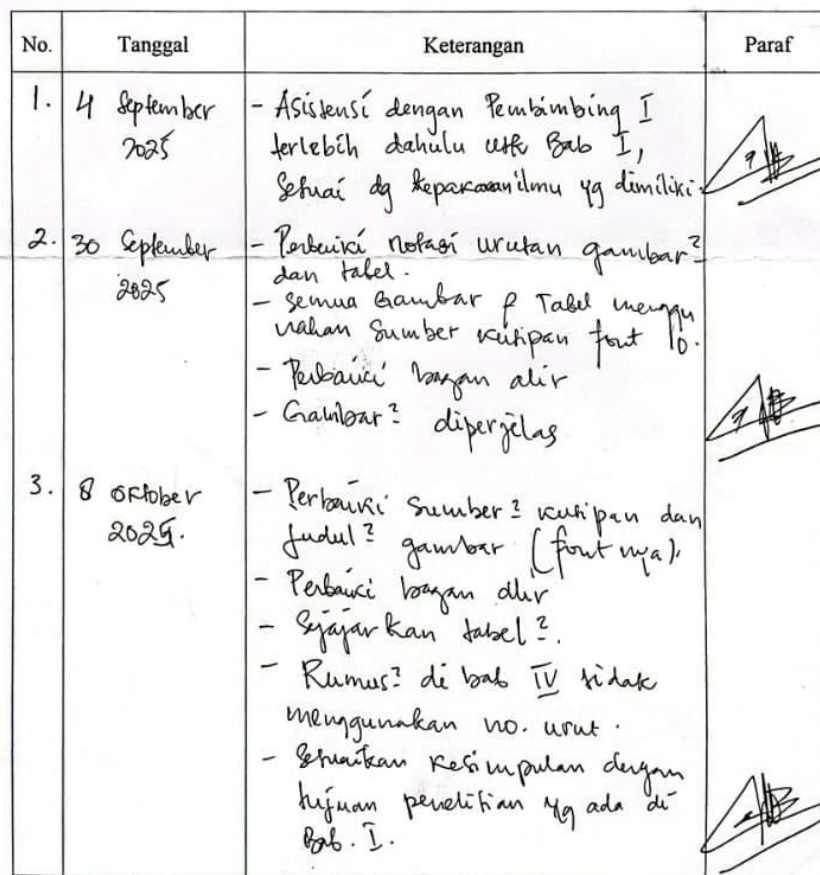 No. Tanggal Keterangan Paraf
1. 4 September - Asistensi dengan Pembimbing I
2025 terlebih dahulu utk Bab I,
Sesuai dg kepakaran ilmu yg dimiliki
2. 30 September - Perbaiki notasi urutan gambar²
dan tabel.
2025
- Semua Gambar & Tabel menggu
nakan Sumber kutipan font 10.
- Perbaiki bagan alir
- Gambar² diperjelas
3. 8 Oktober - Perbaiki Sumber² kutipan dan
2025. Judul² gambar (font nya).
- Perbaiki bagan alir
- Sejajarkan tabel².
- Rumus² di bab IV tidak
menggunakan no. urut.
- Sesuaikan kesimpulan dengan
tujuan penelitian yg ada di
Bab. I.